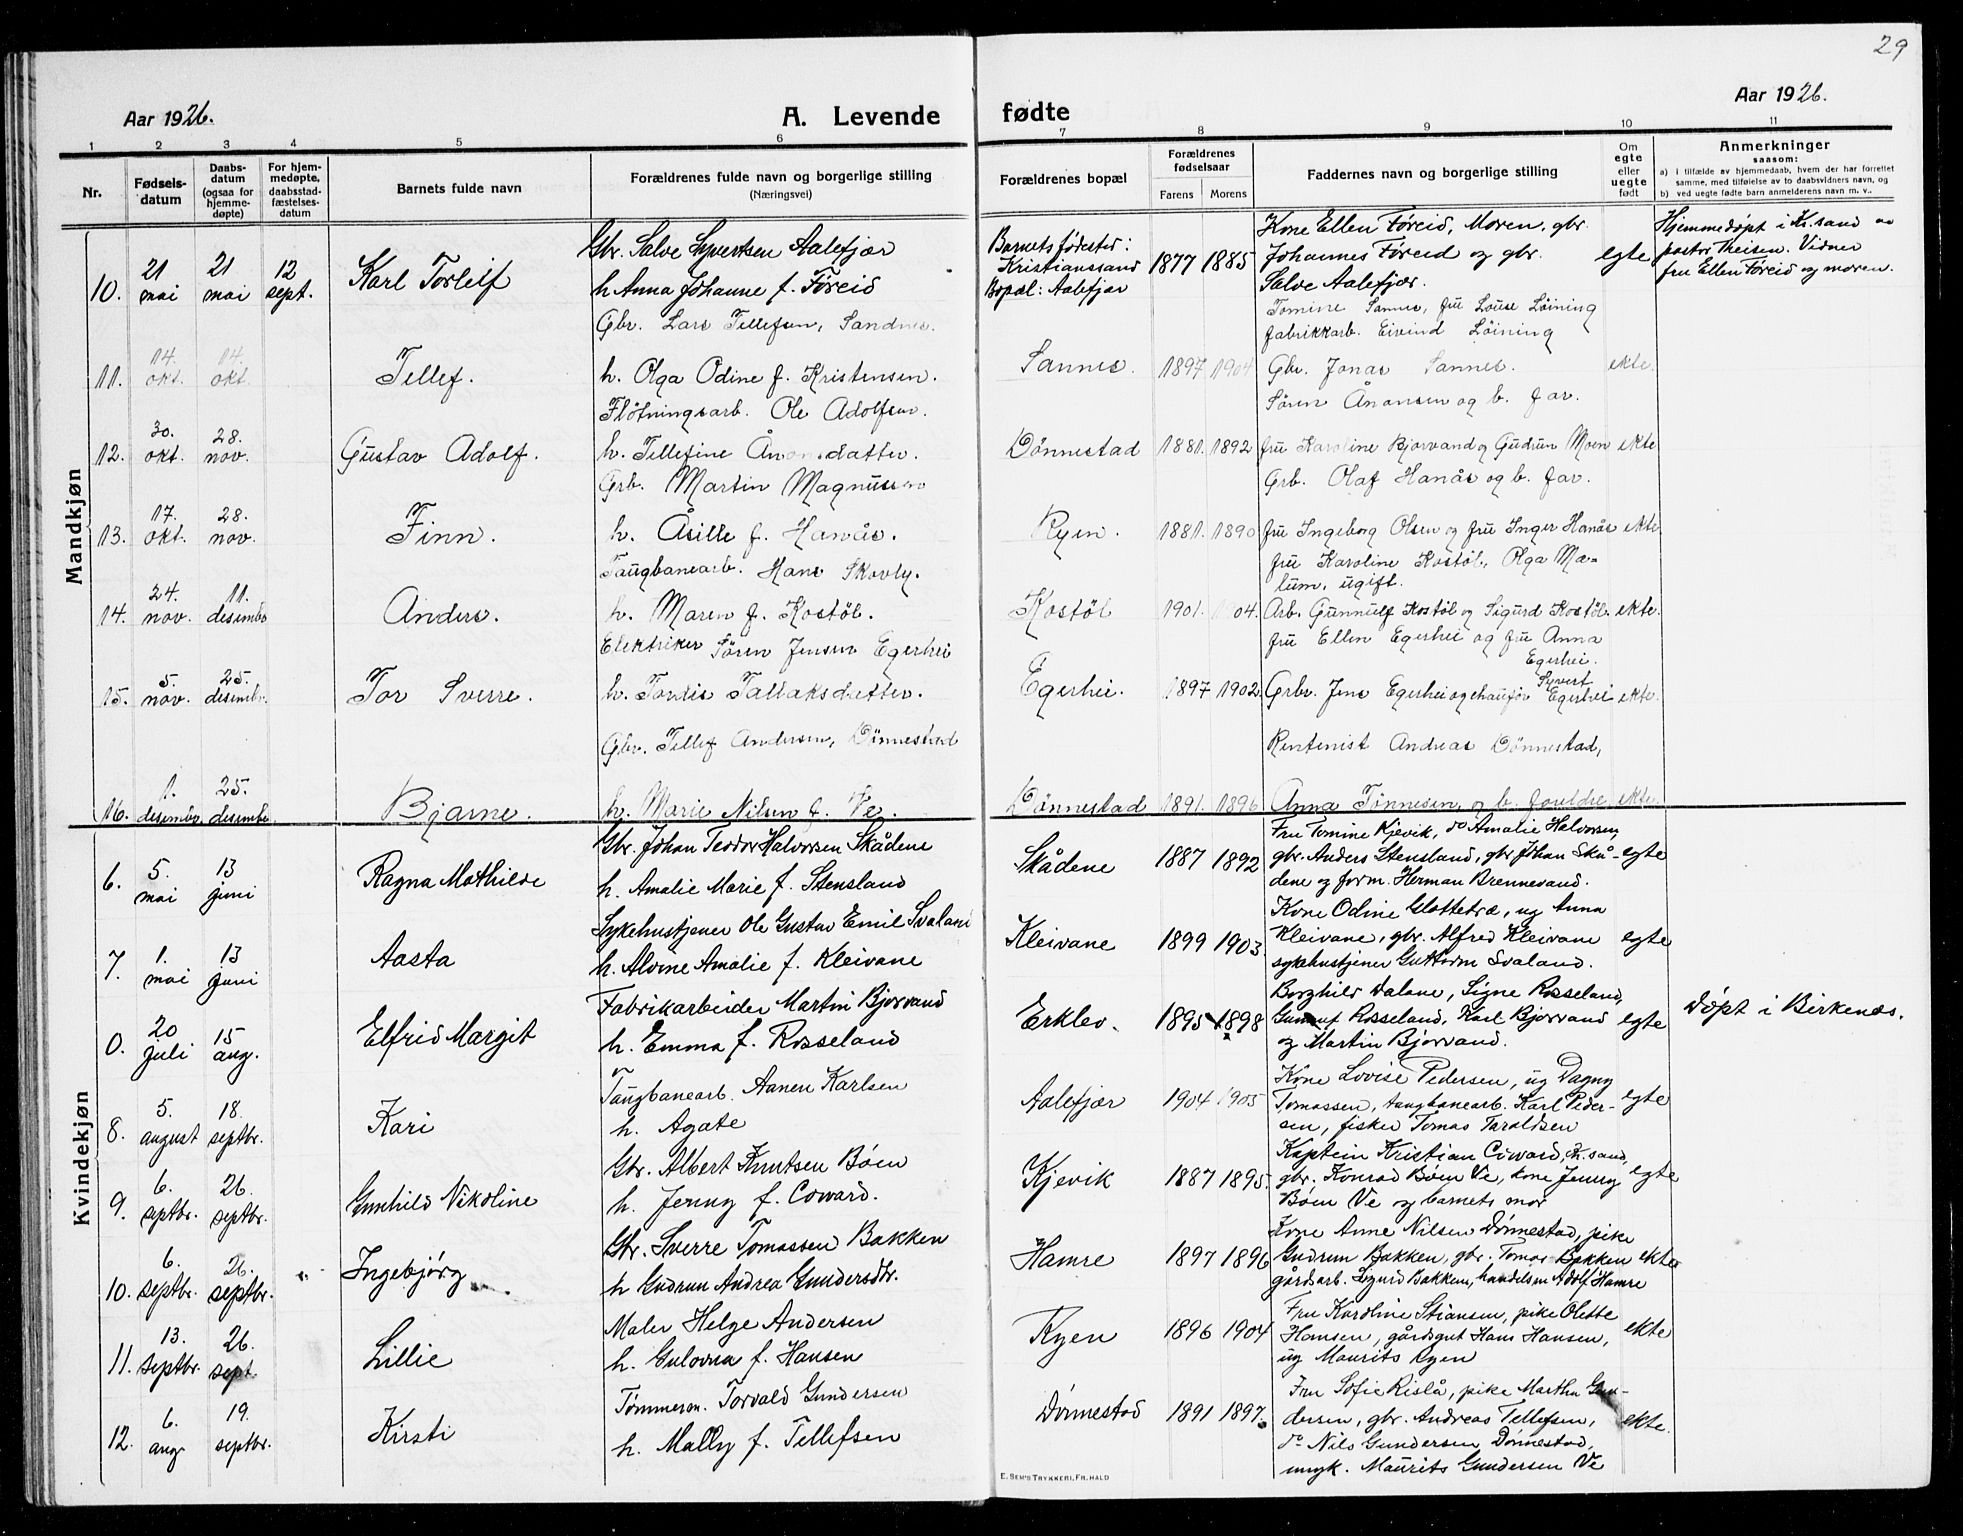 29
Aar 1926.
A. Levende fødte
Aar 1926.
1 2 3 4 5 6 7 8 9 10 11
Nr.
Fødsels-
datum
Daabs-
datum
(ogsaa for
hjemme-
døpte)
For hjem-
medøpte,
daabsstad-
fæstelses-
datum
Barnets fulde navn
Forældrenes fulde navn og borgerlige stilling
(Næringsvei)
Forældrenes bopæl
Forældrenes
fødselsaar
Farens Morens
Faddernes navn og borgerlige stilling
Om
egte
eller
uegte
født
Anmerkninger
saasom:
a) i tilfælde av hjemmedaab, hvem der har forrettet
samme, med tilføielse av to daabsvidners navn, og
b) ved uegte fødte barn anmelderens navn m. v..
Mandkjøn
10.
21
mai
21
mai
12
sept.
Karl Torleif
Gbr. Salve Syvertsen Aalefjær
h. Anna Johanne f. Føreid
Barnets fødested:
Kristianssand
Bopæl: Aalefjær
1877 1885
Kone Ellen Føreid, Moren, gbr.
Johannes Føreid og gbr.
Salve Aalefjær.
egte
Hjemmedøpt i Kr.sand av
pastor Theisen. Vidner
fru Ellen Føreid og moren.
11.
14.
okt.
14.
okt.
Tellef.
Gbr. Lars Tellefsen, Sandnes.
h. Olga Odine f. Kristensen.
Sannes.
1897 1904
Tomine Sannes, fru Louse Löining
fabrikkarb. Eivind Löining
Gbr. Jonas Sannes.
ekte.
12.
30.
okt.
28.
nov.
Gustav Adolf.
Flötningsarb. Ole Adolfsen.
h. Tellefine Ånonsdatter.
Dönnestad
1881. 1892
Sören Ånonsen og b. far.
fru Karoline Bjorvand og Gudrun Moen
ekte
13.
17.
okt.
28.
nov.
Finn.
Grb. Martin Magnussen
h. Åsille f. Hanås.
Ryen.
1881. 1890
Grb. Olaf Hanås og b. far.
fru Ingeborg Olsen og fru Inger Hanås
ekte
14.
24.
nov.
11.
desembr
Anders.
Taugbanearb. Hans Skovly.
h. Maren f. Kostöl.
Kostöl
1901. 1904.
fru Karoline Kostöl, Olga Mæ-
lum, ugift.
Arb. Gunnulf Kostöl og Sigurd Kostöl.
ekte.
15.
5.
nov.
25.
desembr.
Tor Sverre.
Elektriker Sören Jensen Egerhei
h. Tordis Tallaksdatter.
Egerhei.
1897 1902.
fru Ellen Egerhei og fru Anna
Egerhei.
Grbr. Jens Egerhei og chauför Syvert Egerhei
ekte.
16.
1.
desembr.
25.
desembr
Bjarne.
Gbr. Tellef Andersen, Dönnestad
h. Marie Nilsen f. Ve.
Dönnestad
1891. 1896
Rentenist Andreas Dönnestad,
Anna Tönnesen og b. foreldre
ekte.
Kvindekjøn
6.
5.
mai
13
juni
Ragna Mathilde
Gbr. Johan Teodor Halvorsen Skådene
h. Amalie Marie f. Stensland
Skådene
1887 1892
Fru Tomine Kjevik, do Amalie Halvorsen,
gbr. Anders Stensland, gbr Johan Skå-
dene og form. Herman Brennevand.
egte
7.
1.
mai
13
juni
Aasta
Sykehustjener Ole Gustav Emil Svaland
h. Alvine Amalie f. Kleivane
Kleivane
1899 1903.
Kone Odine Glattetræ, ug Anna
Kleivane, gbr. Alfred Kleivane
sykehustjener Guttorm Svaland.
egte
0.
20
juli
15
aug.
Elfrid Margit
Fabrikarbeider Martin Bjorvand
h. Emma f. Rosseland
Erklev.
1895 1898
Borghild Dalane, Signe Rosseland,
Gunnuf Rosseland, Karl Bjorvand
og Martin Bjorvand.
egte
Døpt i Birkenes.
8.
5.
august
18.
septbr.
Kari
Taugbanearb. Aanen Karlsen
h. Agate
Aalefjær
1904 1905
Kone Lovise Pedersen, ug Dagny
Tomassen, taugbanearb. Karl Peder-
sen, fisker Tomas Taraldsen
egte
9.
6.
septbr.
26.
septbr.
Gunhild Nikoline
Gbr. Albert Knutsen Bøen
h. Jenny f. Coward.
Kjevik
1887 1895.
Kaptein Kristian Coward, Kr.sand,
gbr. Konrad Bøen Ve, kone Jenny
Bøen Ve og barnets mor
egte
10.
6.
septbr.
26.
septbr.
Ingebjørg
Gbr. Sverre Tomassen Bakken
h Gudrun Andrea Gundersdtr.
Hamre
1897 1896
Kone Anne Nilsen Dønnestad, pike
Gudrun Bakken, gbr. Tomas Bakken
gårdsarb. Sigurd Bakken, handelsm Adolf Hamre
ekte
11.
13.
septbr.
26.
sept.
Lillie
Maler Helge Andersen
h. Gulovna f. Hansen
Ryen
1896 1904
Fru Karoline Stiansen, pike Olette
Hansen, gårdsgut Hans Hansen,
ug Maurits Ryen
ekte
12.
6.
aug
19.
septbr.
Kirsti
Tømmerm. Torvald Gundersen
h. Mally f. Tellefsen
Dønnestad
1891 1897.
Fru Sofie Rislå, pike Martha Gun-
dersen, gbr. Andreas Tellefsen,
do Nils Gundersen Dønnestad,
ungk. Maurits Gundersen Ve
ekte.
E. SEM'S TRYKKERI, FR. HALD